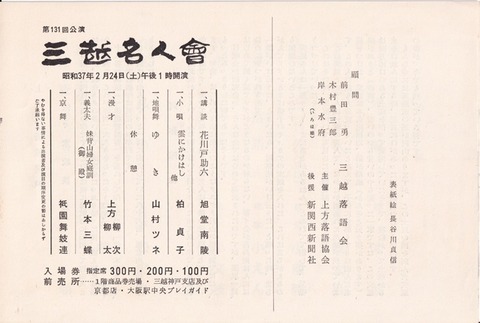 表紙絵 長谷川貞信
顧問
前田勇
木村豊三郎
岸本水府
(いろは順)
三越落語会
主催 上方落語協会
後援 新関西新聞社
第131回公演
三越名人會
昭和37年2月24日(土)午後1時開演
一、講談 花川戸助六 旭堂南陵
一、小唄 雲にかけはし 他 柏貞子
一、地唄舞 ゆき 山村ツネ
休憩
一、漫才 上方 柳次 柳太
一、義太夫 妹背山婦女庭訓 (御殿) 竹本三蝶
一、京舞 祇園舞妓連
やむを得ない事情による出演者及び演目の順序変更の節はあしからず
ご了承願います
入場券 指定席 300円・200円・100円
前売所……1階商品券売場・三越神戸支店及び
京都店・大阪駅中央プレイガイド